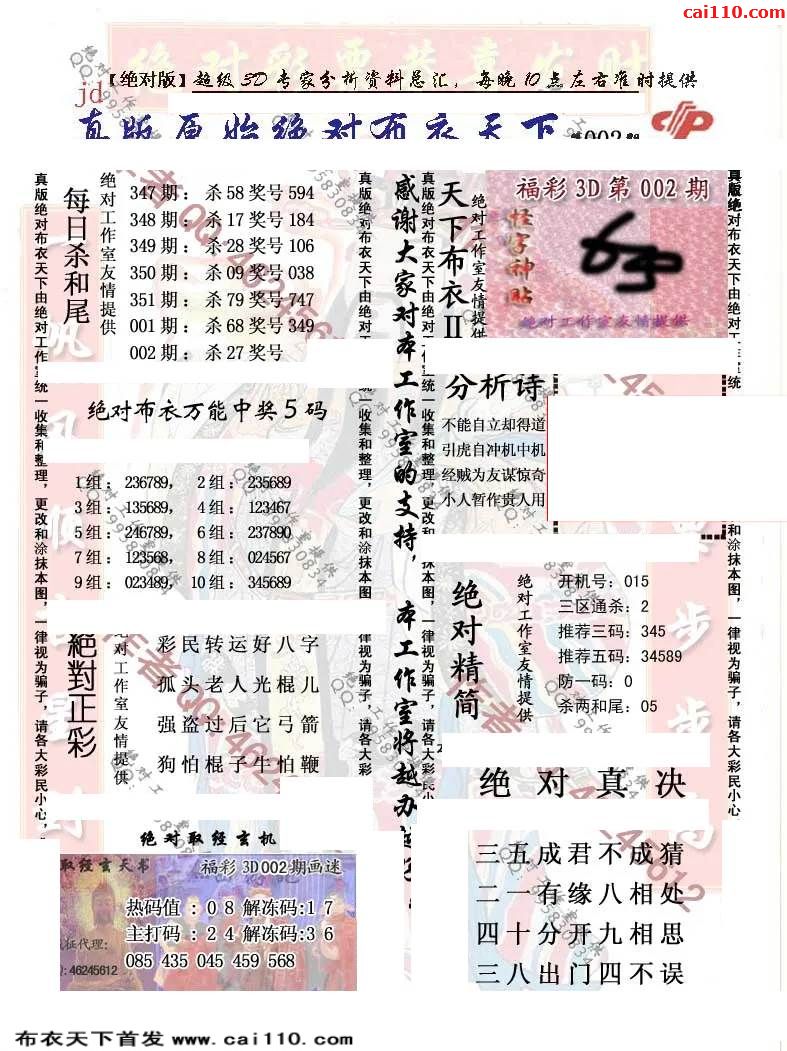 cai110.com
【绝对版】超级3D专家分析资料总汇,每晚10点左右准时提供
jd
真版原始绝对布衣天下
每日杀和尾
绝对工作室友情提供
347期：杀58奖号594
348期：杀17奖号184
349期：杀28奖号106
350期：杀09奖号038
351期：杀79奖号747
001期：杀68奖号349
002期：杀27奖号
绝对布衣万能中奖5码
1组：236789， 2组：235689
3组：135689， 4组：123467
5组：246789， 6组：237890
7组：123568， 8组：024567
9组：023489， 10组：345689
絕對正彩
绝对工作室友情提供
彩民转运好八字
孤头老人光棍儿
强盗过后它弓箭
狗怕棍子牛怕鞭
绝对取经玄机
取经玄天书
福彩3D002期画迷
热码值：08解冻码:17
主打码：24解冻码:36
085 435 045 459 568
征代理:
:46245612
感谢大家对本工作室的支持，本工作室将越办
天下布衣II
绝对工作室友情提供
福彩3D第002期
怪字神贴
绝对工作室友情提供
分析诗
不能自立却得道
引虎自冲机中机
经贼为友谋惊奇
小人暂作贵人用
绝对精简
绝对工作室友情提供
开机号：015
三区通杀：2
推荐三码：345
推荐五码：34589
防一码：0
杀两和尾：05
绝对真决
三五成君不成猜
二一有缘八相处
四十分开九相思
三八出门四不误
真版绝对布衣天下由绝对工作室统一收集和整理，更改和涂抹本图，一律视为骗子，请各大彩民小心，
布衣天下首发 www.cai110.com